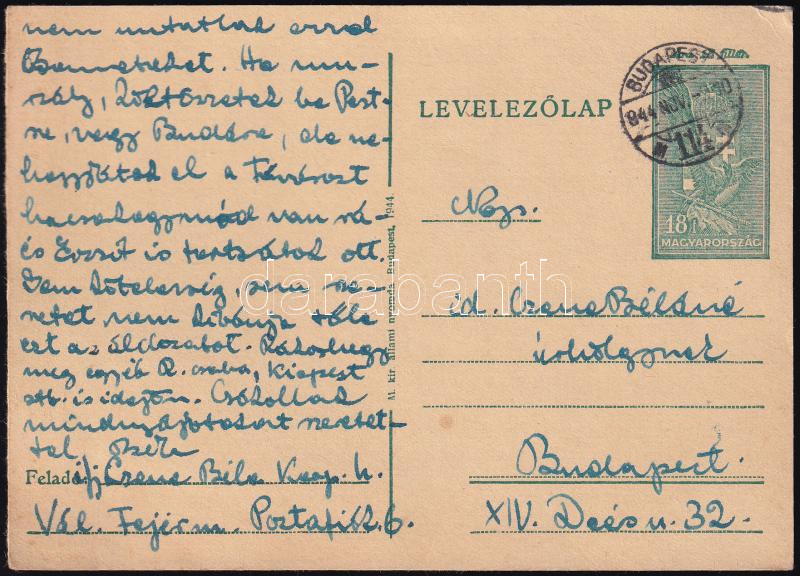 nem mutatlak errol
Benneteket. Ha mu-
száj, költözzetek be Pest-
re, vagy Budára, de ne
hagyjátok el a Fővárost
ha csak egy mód van rá-
és Zsuzsit is tartsátok ott.
Sem kötelesség, sem sze-
retet nem kívánja tőle
ezt az áldozatot. Rákoshegy
meg egyéb R. csaba, Kispest
stb. is idején. Csókollak
mindnyájatokat szeretet-
tel Béla
Feladó: ifj Czene Béla Karp. h.
Vál. Fejér m. Postafiók 6.
LEVELEZŐLAP
BUDAPEST
944 NOV
114
18 f
MAGYARORSZÁG
M. kir. állami nyomda Budapest, 1944.
Ngs.
id. Czene Béláné
úrhölgynek
Budapest
XIV. Deés u. 32.
darabanth